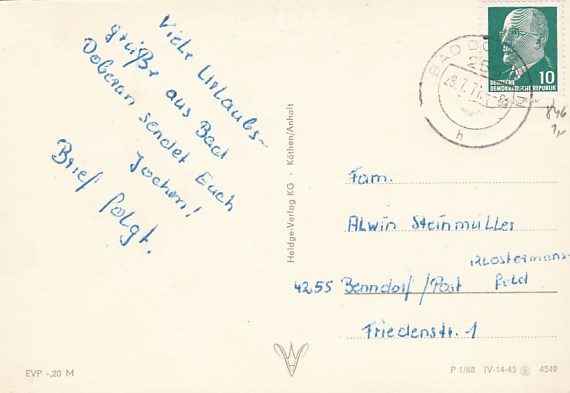 Viele Urlaubs-
grüße aus Bad
Doberan sendet Euch
Jochen!
Brief folgt.
EVP -,20 M
Heldge-Verlag KG · Köthen/Anhalt
BAD DO
25
28.7.71.-8
h
DEUTSCHE
DEMOKRATISCHE REPUBLIK
10
846
1,-
Fam.
Alwin Steinmüller
Klostermans-
4255 Benndorf/Post feld
Friedenstr. 1
P 1/68 IV-14-45 4549